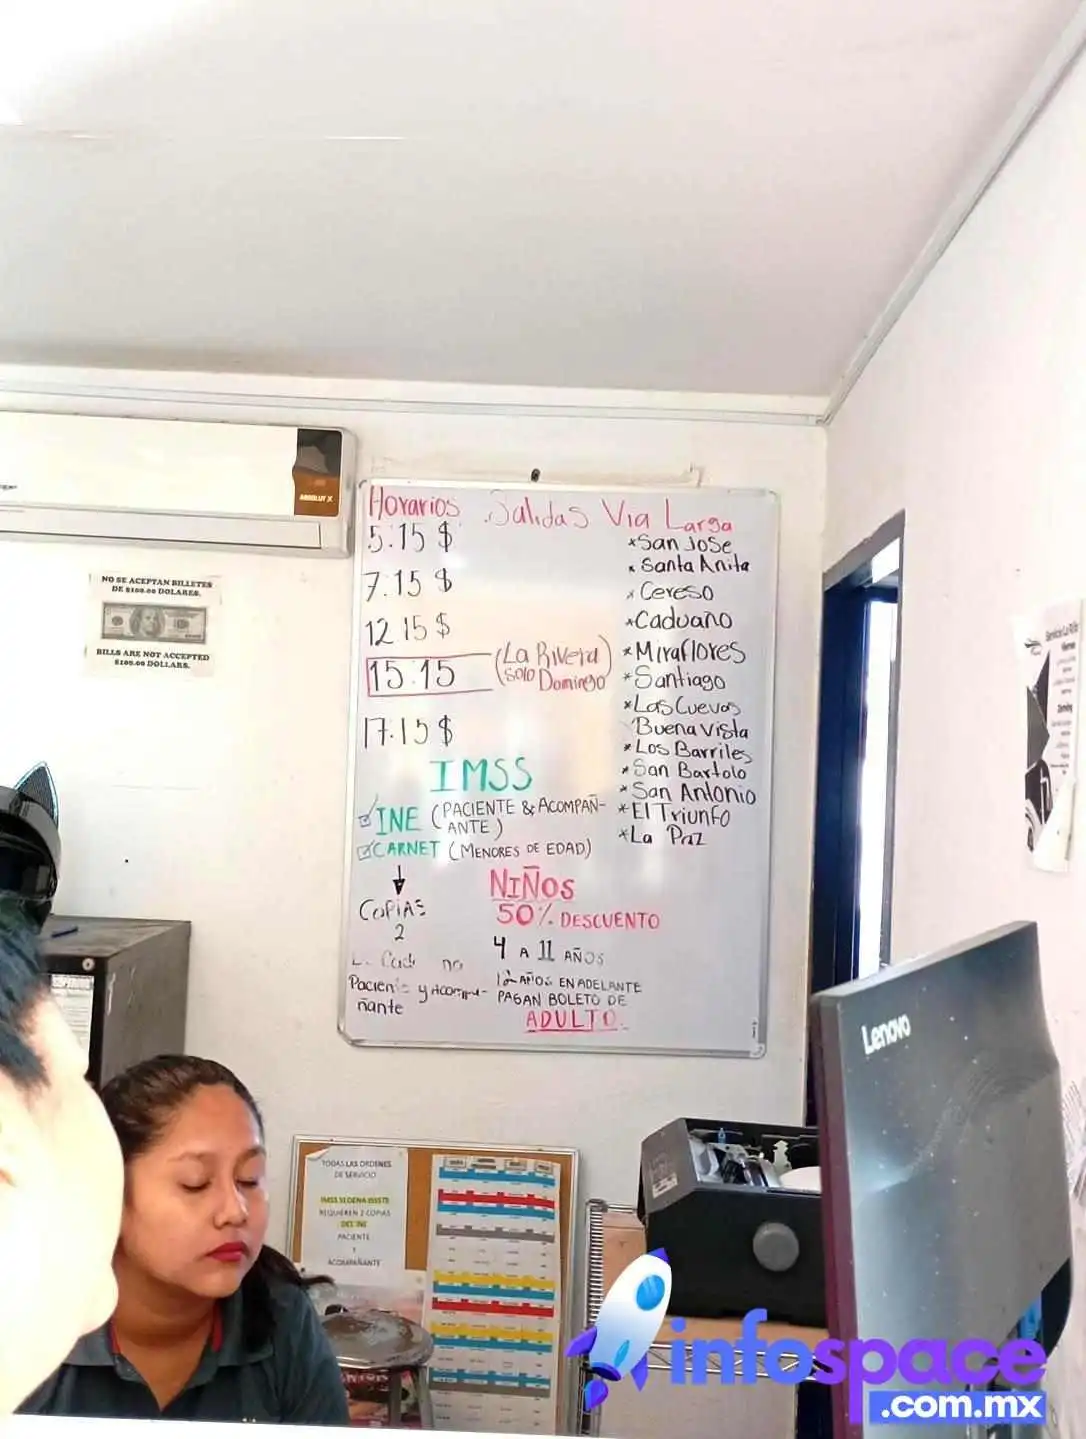 Horarios Salidas Via Larga
5:15 $
7:15 $
12 15 $
15:15 (La Rivera) (solo Domingo
17:15 $
*San Jose
*Santa Anita
*Cereso
*Caduaño
*Miraflores
*Santiago
*Las Cuevas
Buena Vista
*Los Barriles
*San Bartolo
*San Antonio
*El Triunfo
*La Paz
IMSS
INE (PACIENTE & ACOMPAÑ-
ANTE)
CARNET (MENORES DE EDAD)
COPIAS
2
Paciente y Acompa-
ñante
NIÑOS
50% DESCUENTO
4 A 11 AÑOS
12 AÑOS EN ADELANTE
PAGAN BOLETO DE
ADULTO.
ABSOLUT X
NO SE ACEPTAN BILLETES
DE $100.00 DOLARES.
BILLS ARE NOT ACCEPTED
$100.00 DOLLARS.
Lenovo
TODAS LAS ORDENES
DE SERVICIO
IMSS SEDENA ISSSTE
REQUIEREN 2 COPIAS
DEL INE
PACIENTE
Y
ACOMPAÑANTE
infospace
.com.mx